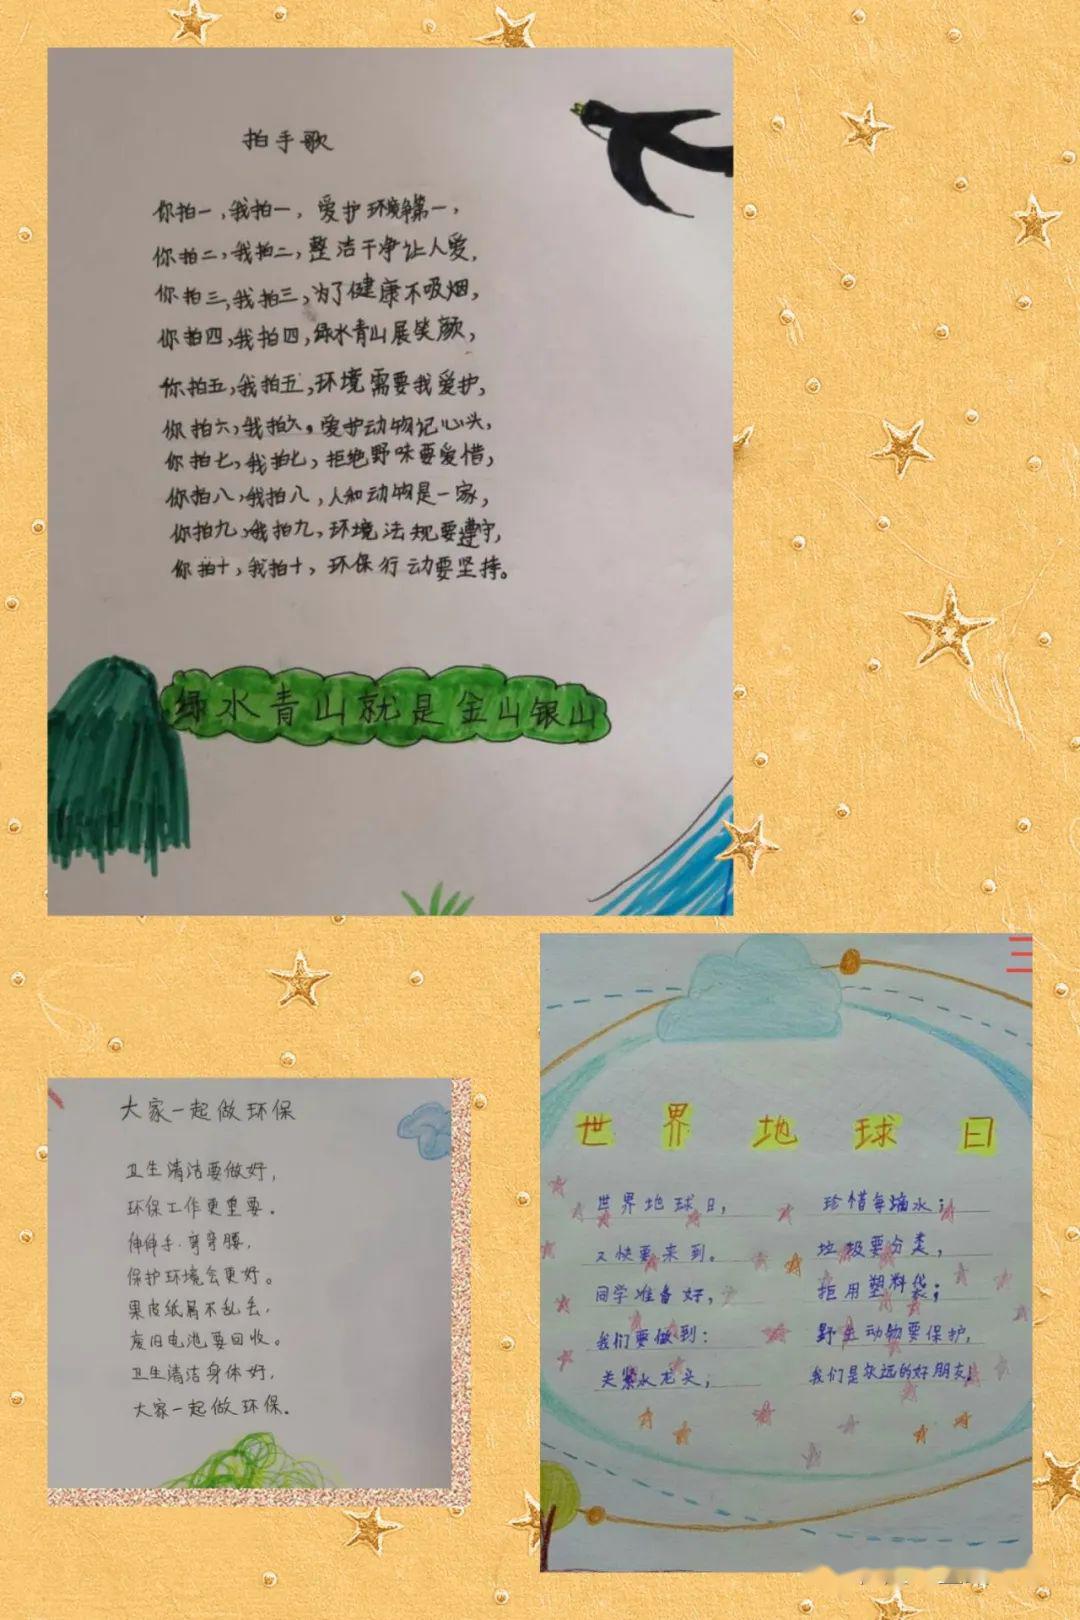 拍手歌
你拍一，我拍一，爱护环境争第一，
你拍二，我拍二，整洁干净让人爱，
你拍三，我拍三，为了健康不吸烟，
你拍四，我拍四，绿水青山展笑颜，
你拍五，我拍五，环境需要我爱护，
你拍六，我拍六，爱护动物记心头，
你拍七，我拍七，拒绝野味要爱惜，
你拍八，我拍八，人和动物是一家，
你拍九，我拍九，环境法规要遵守，
你拍十，我拍十，环保行动要坚持。
绿水青山就是金山银山
大家一起做环保
卫生清洁要做好，
环保工作更重要。
伸伸手，弯弯腰，
保护环境会更好。
果皮纸屑不乱丢，
废旧电池要回收。
卫生清洁身体好，
大家一起做环保。
世界地球日
世界地球日，
又快要来到。
同学准备好，
我们要做到：
关紧水龙头；
珍惜每滴水；
垃圾要分类，
拒用塑料袋；
野生动物要保护，
我们是永远的好朋友！